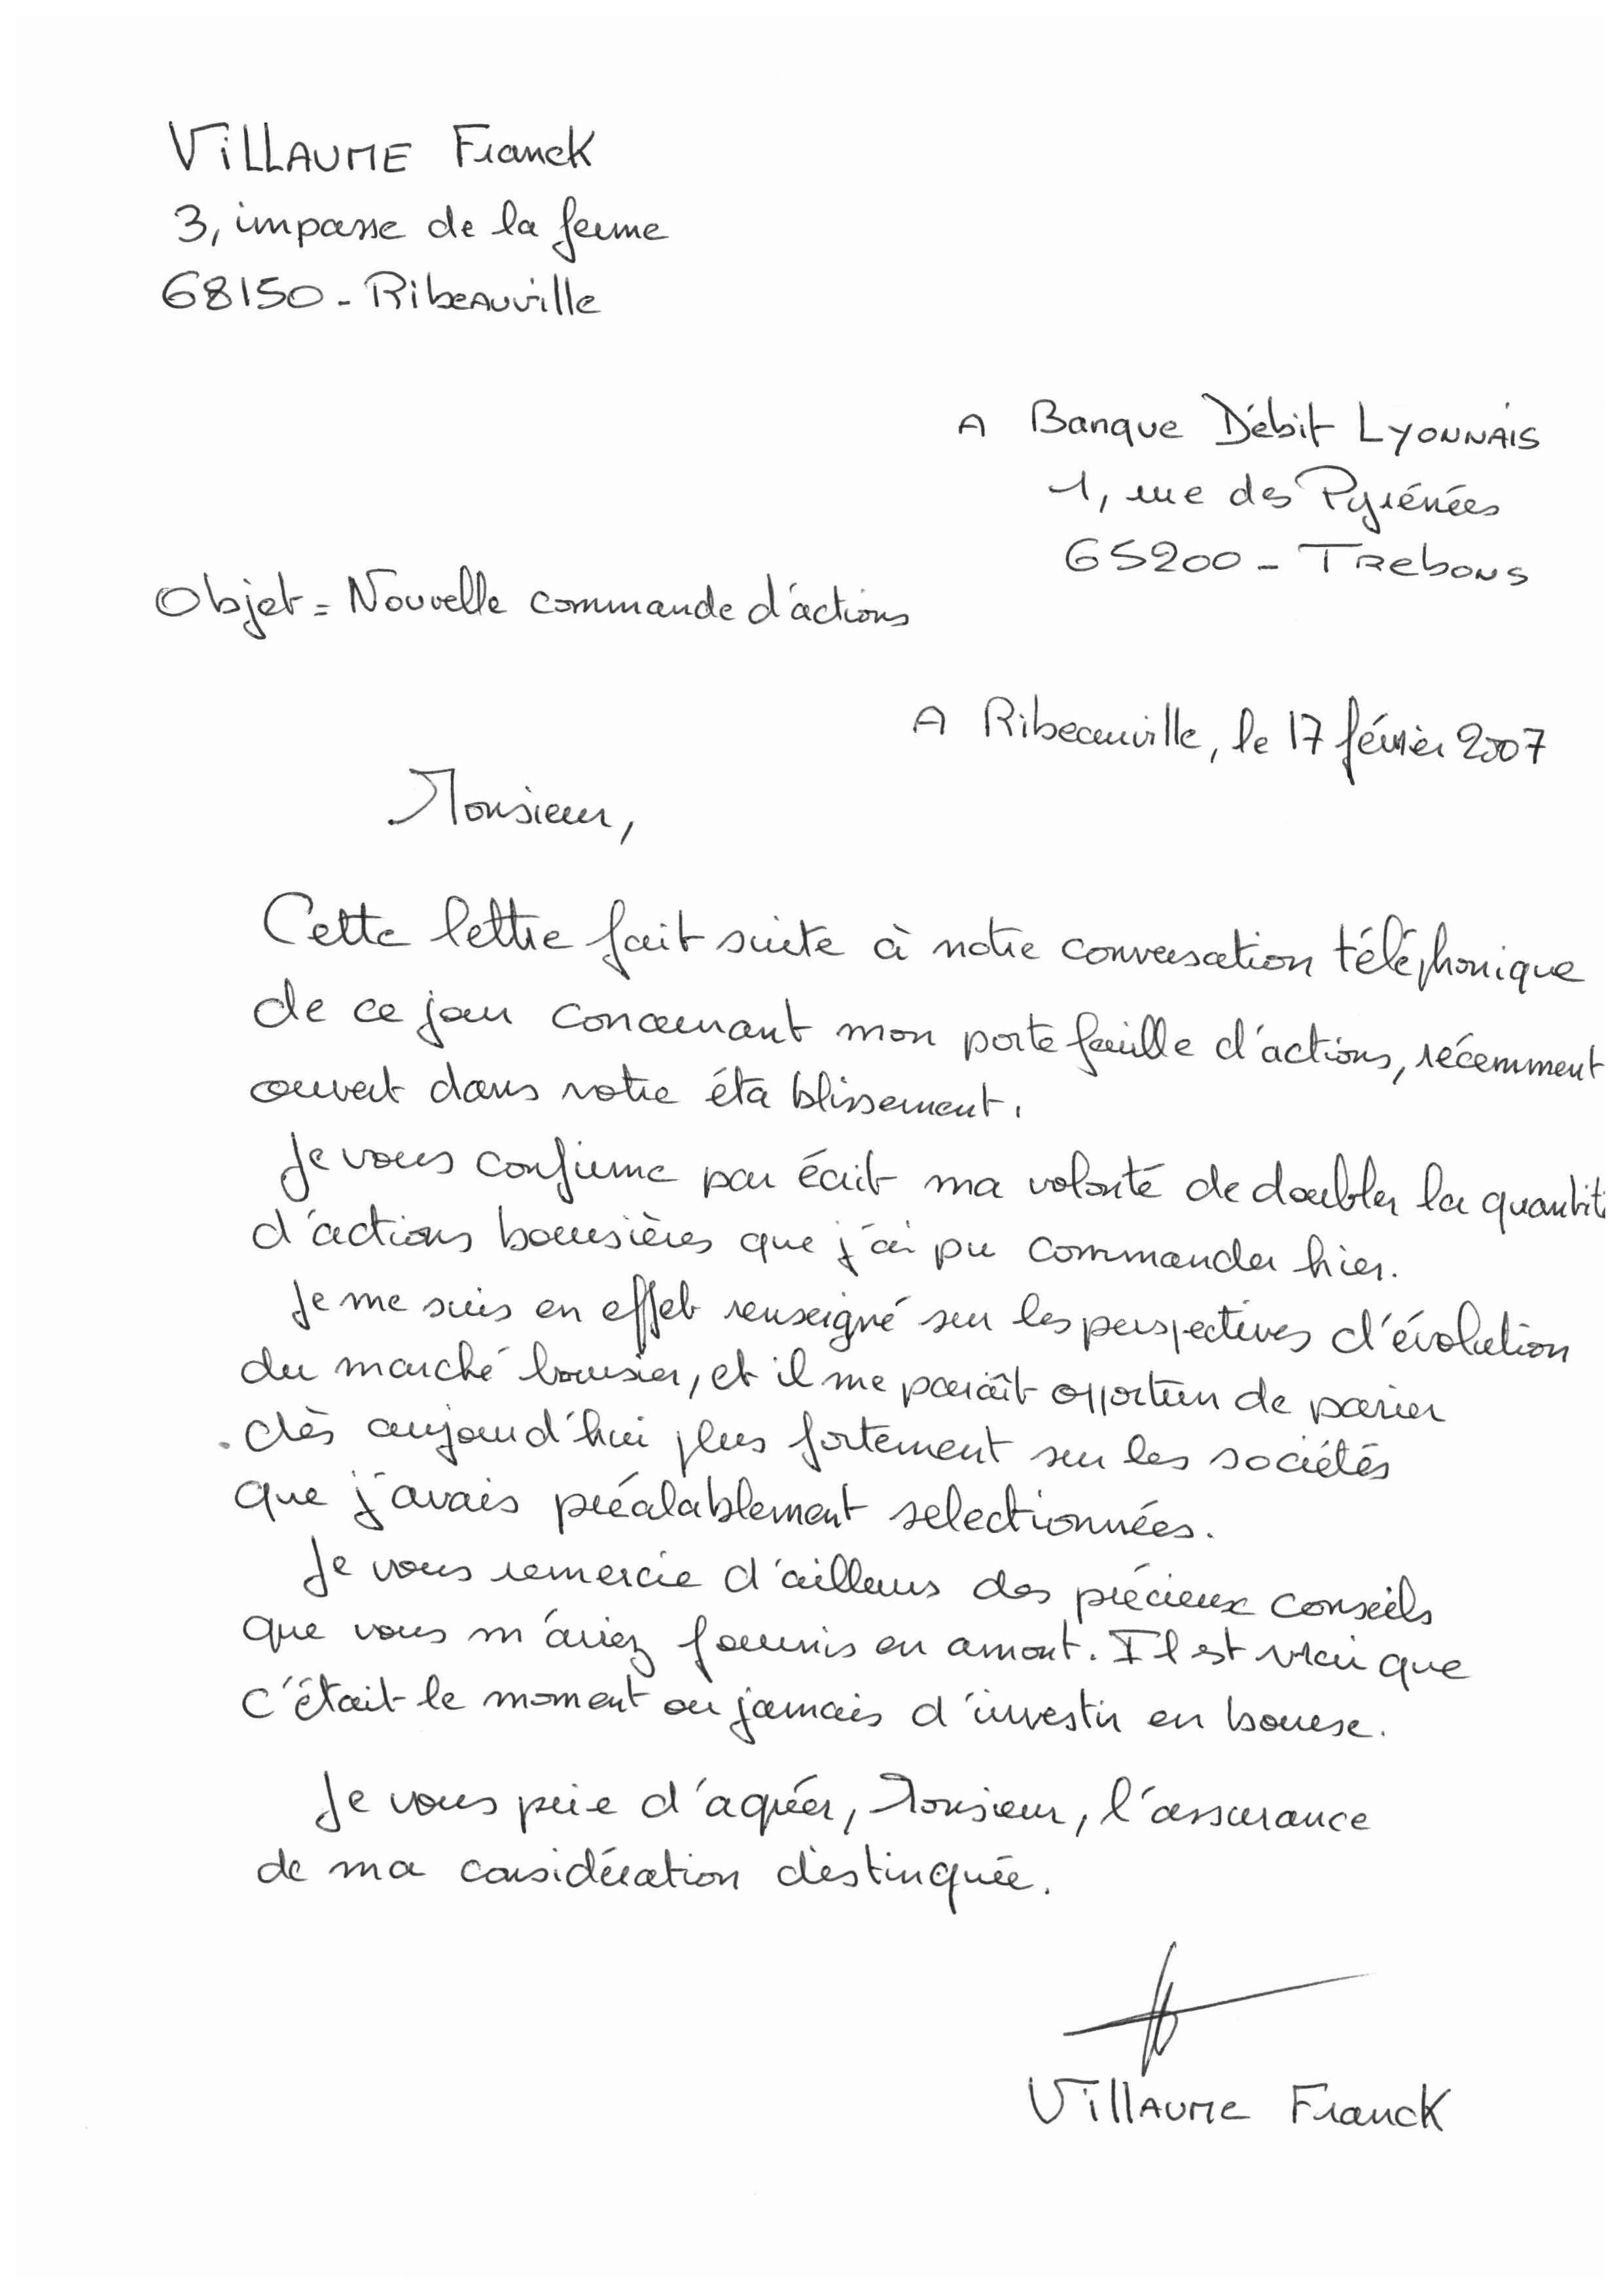 VILLAUME Franck
3, impasse de la ferme
68150 - Ribeauville
A Banque Débit Lyonnais
1, rue des Pyrénées
65200 - Trebons
Objet = Nouvelle commande d'actions
A Ribeauville, le 17 février 2007
Monsieur,
Cette lettre fait suite à notre conversation téléphonique
de ce jour concernant mon portefeuille d'actions, récemment
ouvert dans votre établissement.
Je vous confirme par écrit ma volonté de doubler la quantité
d'actions boursières que j'ai pu commander hier.
Je me suis en effet renseigné sur les perspectives d'évolution
du marché boursier, et il me paraît opportun de parier
dès aujourd'hui plus fortement sur les sociétés
que j'avais préalablement selectionnées.
Je vous remercie d'ailleurs des précieux conseils
que vous m'aviez fournis en amont. Il est vrai que
c'était le moment ou jamais d'investir en bourse.
Je vous prie d'agréer, Monsieur, l'assurance
de ma considération distinguée.
Villaume Franck